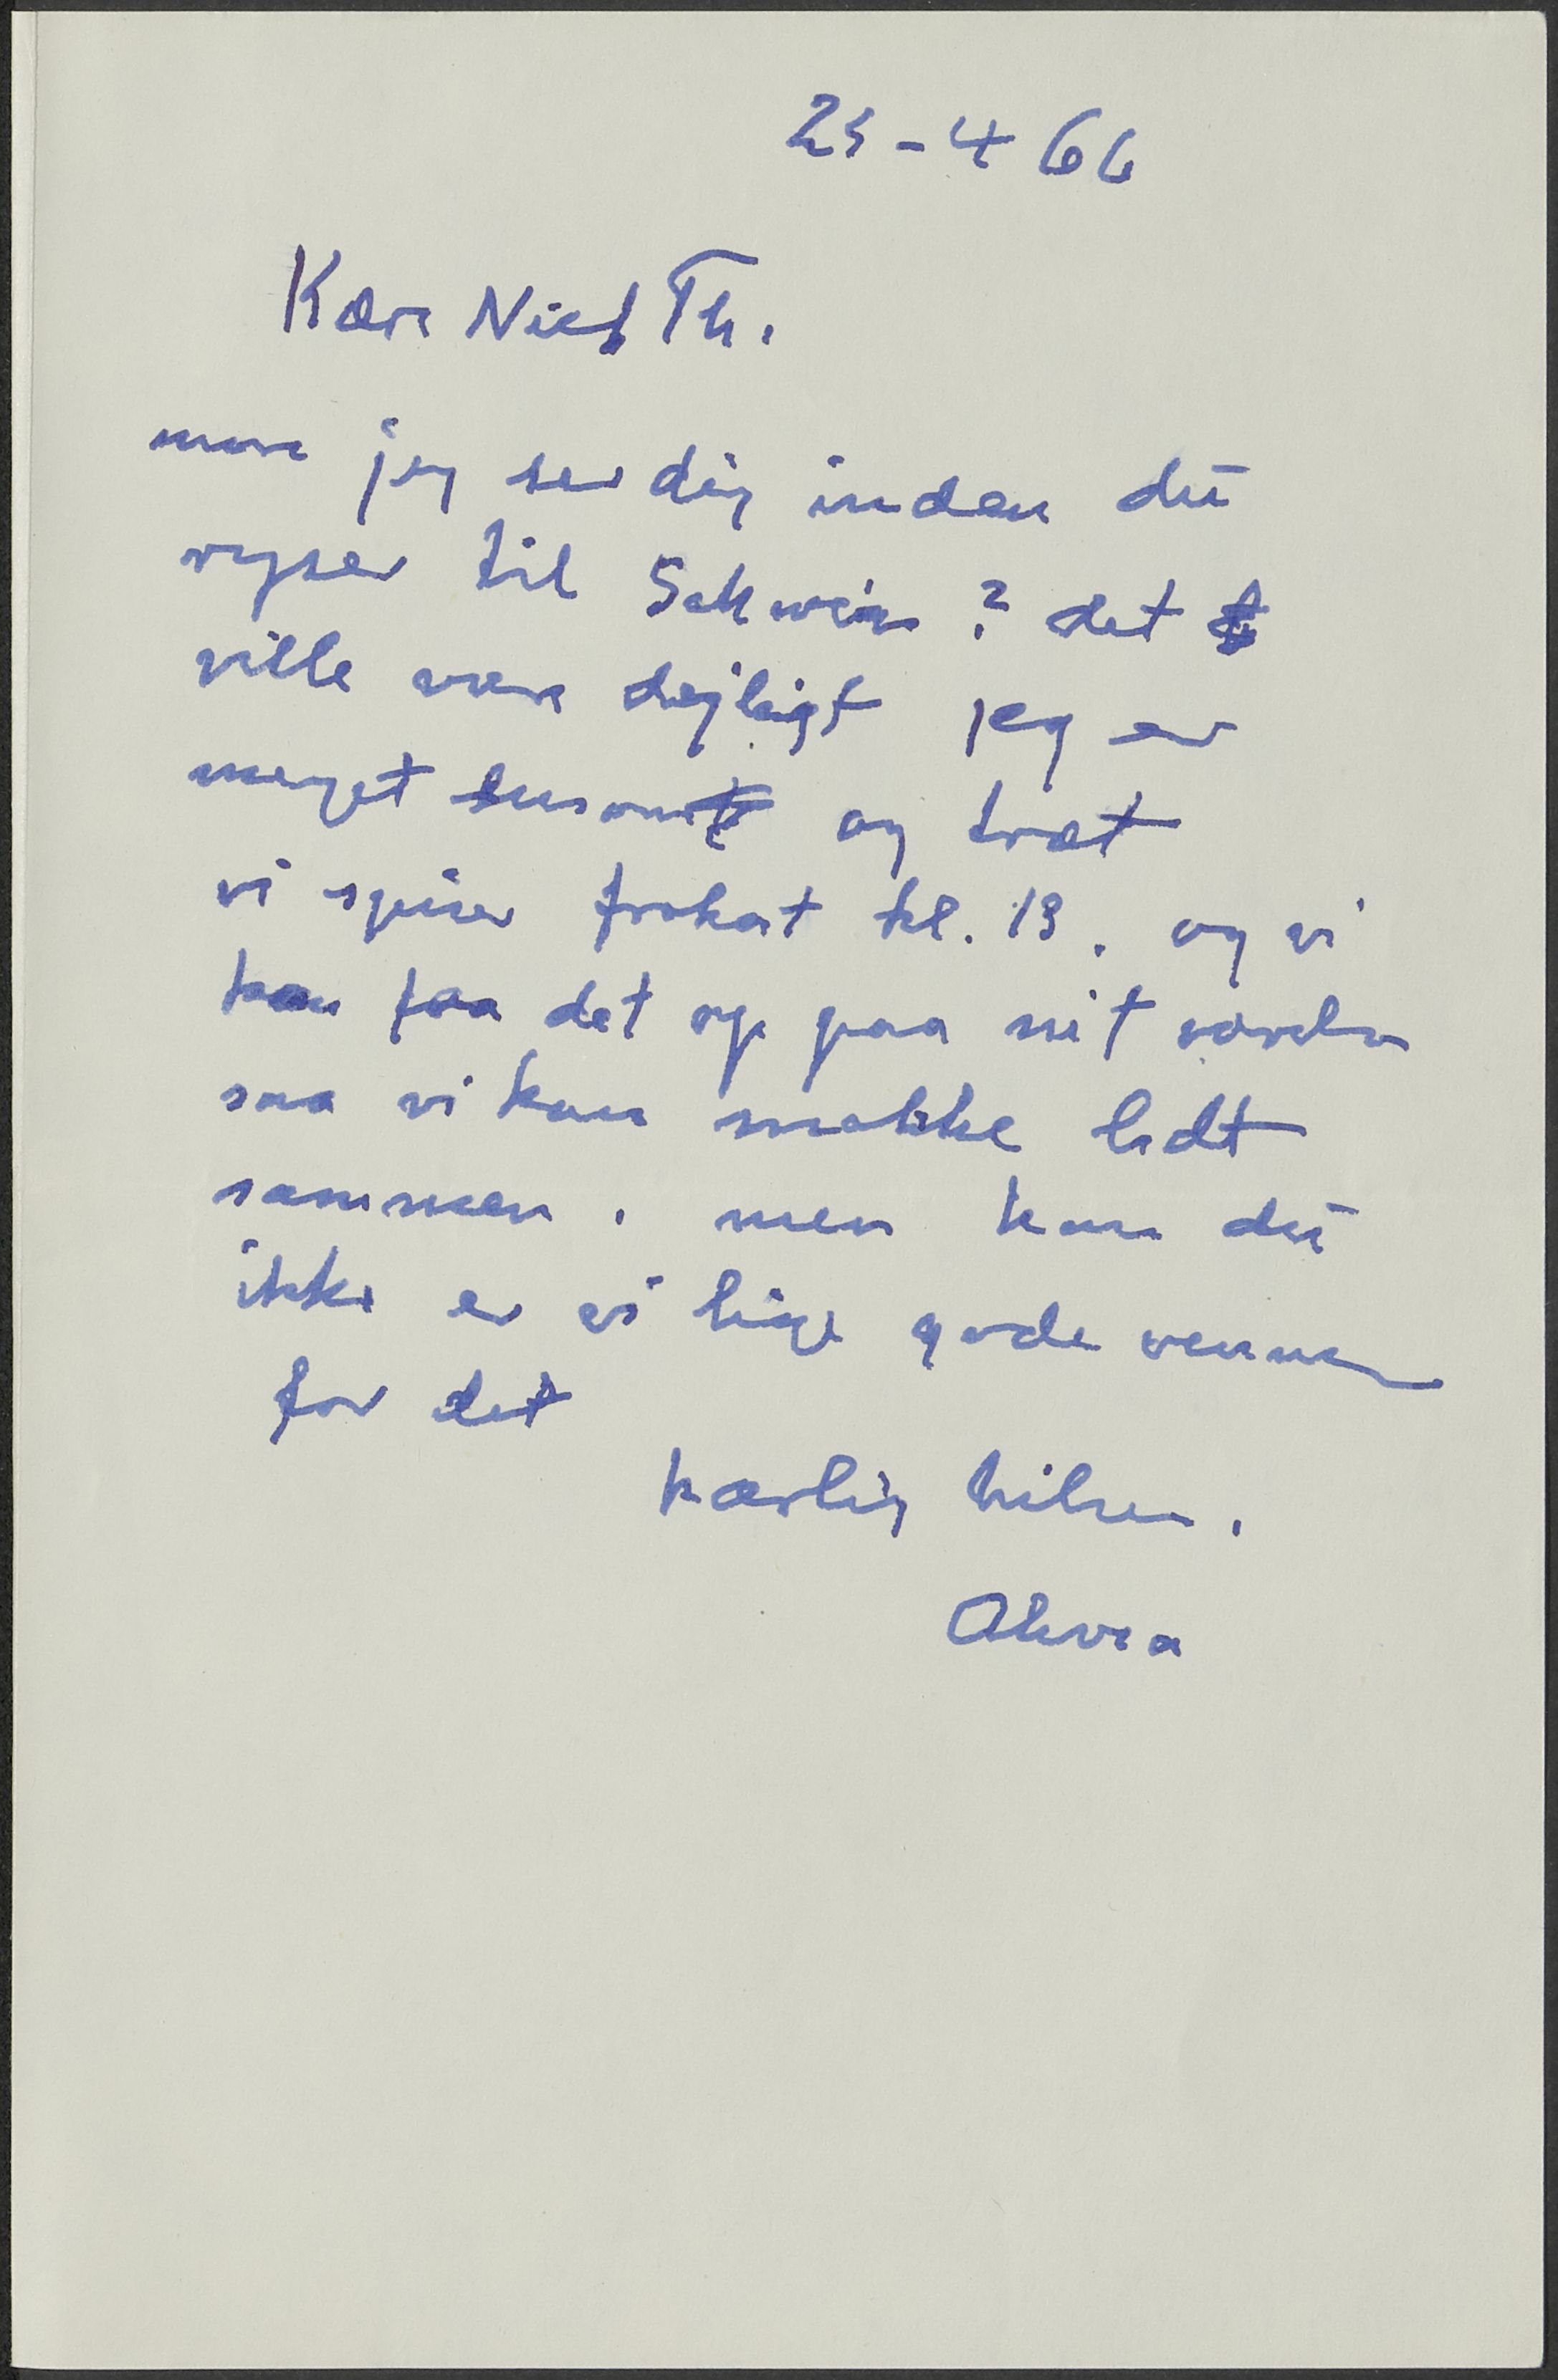 25-4 66
Kære Niels Th.
mon jeg ser dig inden du
rejser til Schweiz? det
ville være dejligt jeg er
meget ensom og træt
vi spiser frokost kl. 13. og vi
kan faa det op paa mit værelse
saa vi kan snakke lidt
sammen. men kan du
ikke er vi lige gode venner
for det
kærlig hilsen.